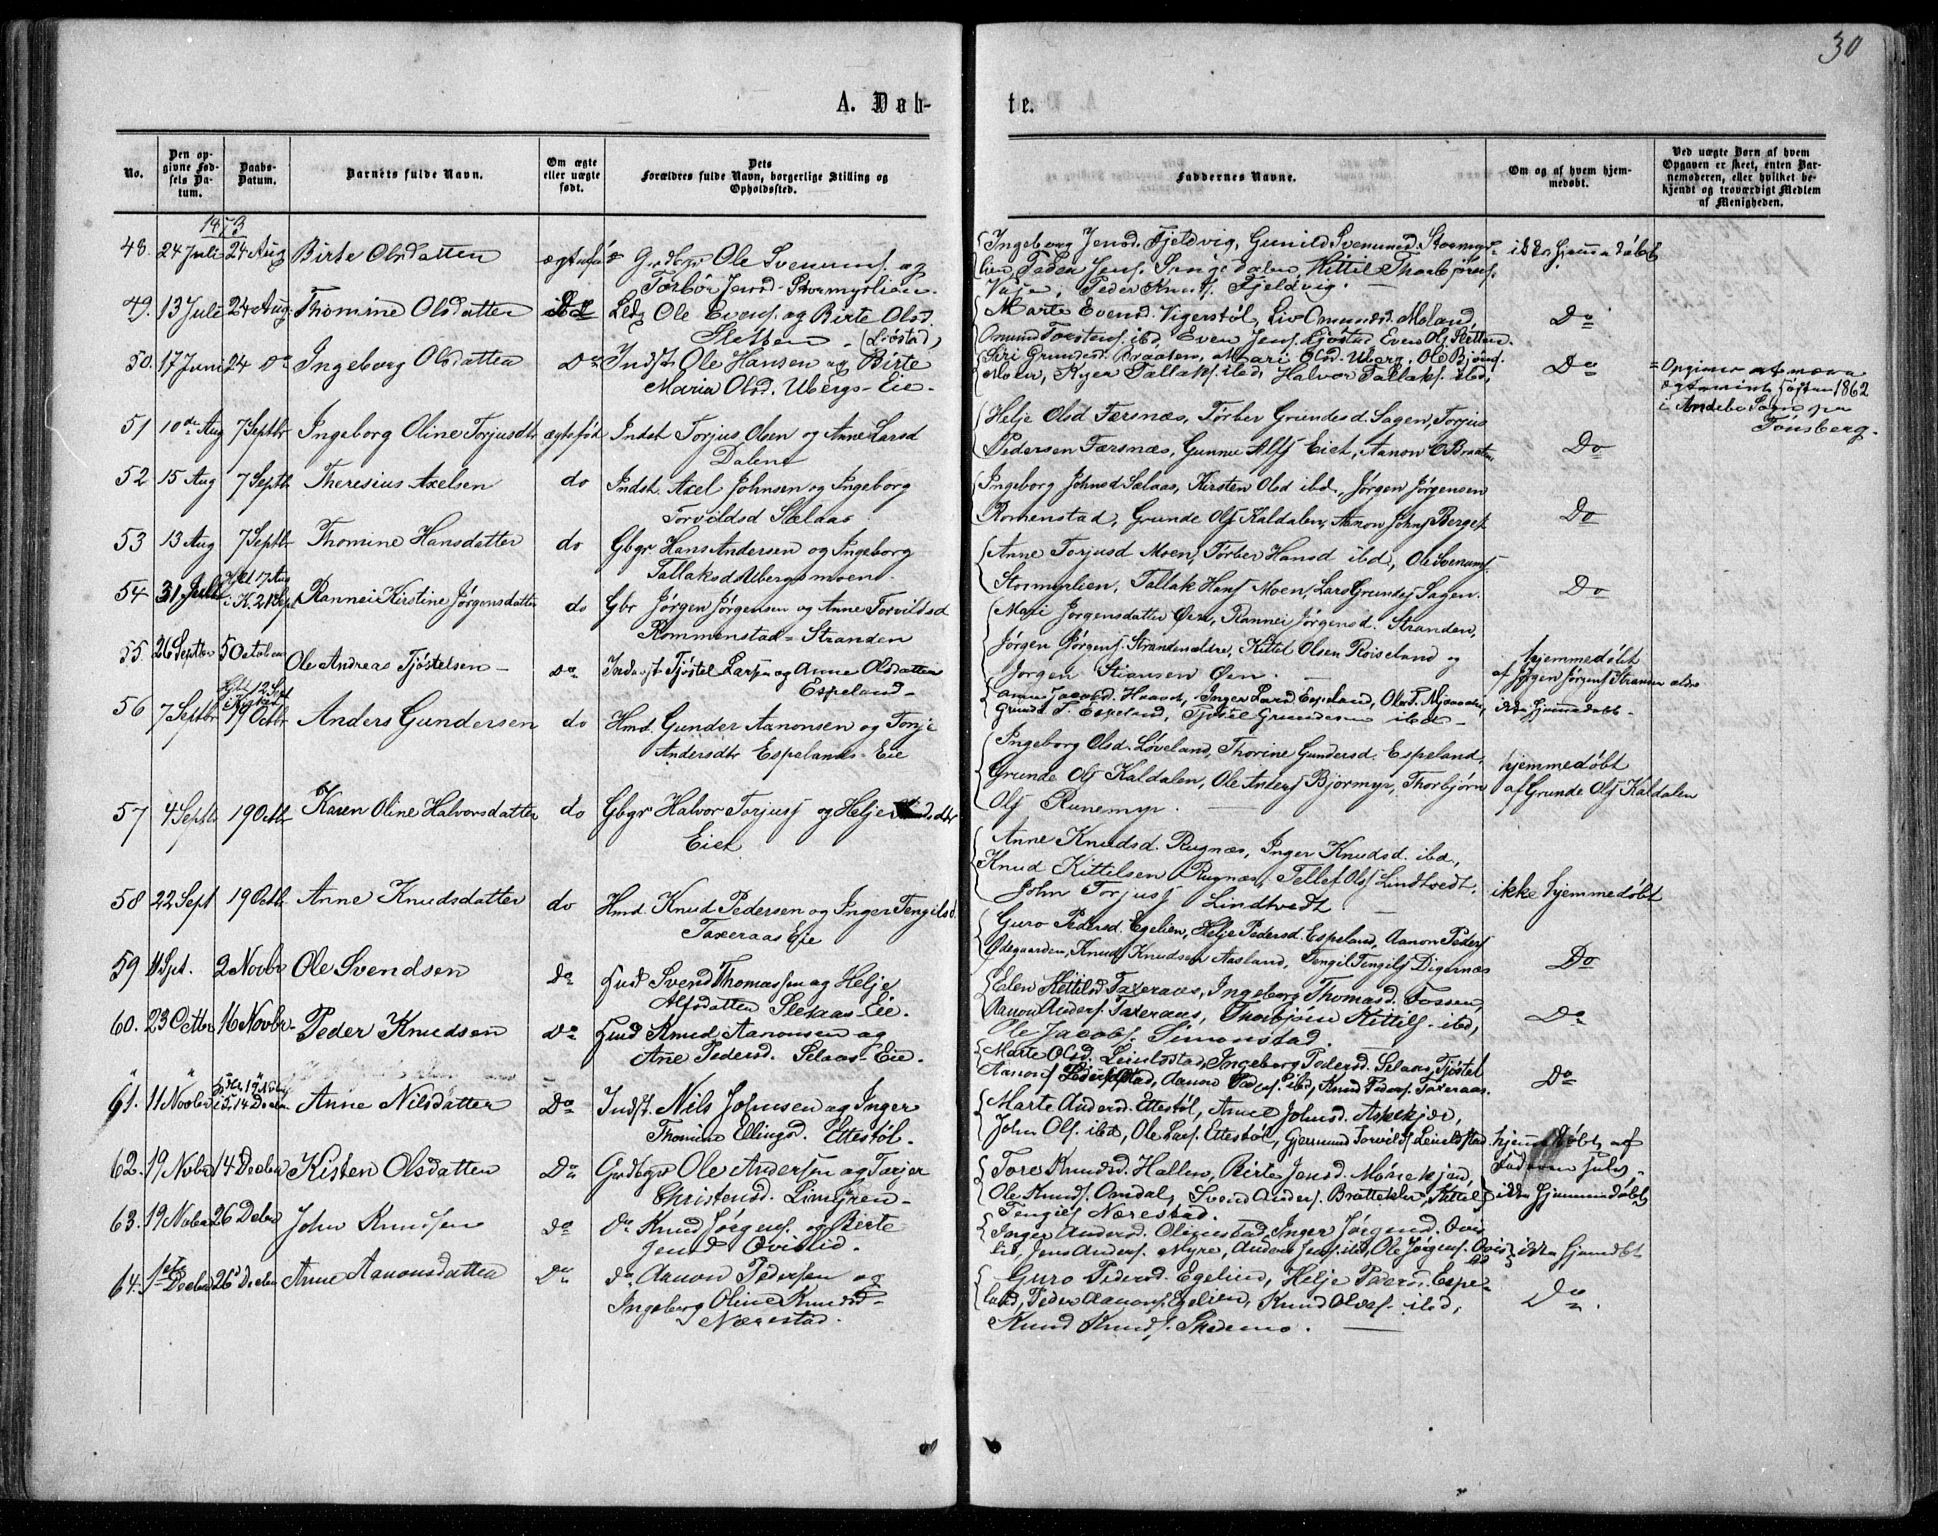 30
A. Døb-
te.
No.
Den opgivne Fødsels Datum.
Daabs-Datum.
Barnets fulde Navn.
Om ægte eller uægte født.
Dets Forældres fulde Navn, borgerlige Stilling og Opholdssted.
Faddernes Navne.
Om og af hvem hjemmedøbt.
Ved uægte Børn af hvem Opgaven er skeet, enten Barnemoderen, eller hvilket bekjendt og troværdigt Medlem af Menigheden.
1873
48. 24 Juli 24 Aug Birte Olsdatter ægtefød Gudbgr Ole Svenums. og
Torbor Jensd. Stormyrlien.
Ingeborg Jensd. Fjeldvig, Gunild Svenumsd. Stormyr-
lien, Peder Jens. Songedalen, Kittil Thorbjørns.
Veje, Peder Knuds. Fjeldvig.
ikke hjemmedøbt
49. 13 Juli 24 Aug. Thomine Olsdatter Do Ole Evens. og Birte Olsd.
Sletten (Liøstad)
Marte Evensd. Vigerstøl, Liv Omundsd. Moland,
Omund Torstens. ibd, Even Jens. Liøstad, Even Ols. Sletten
Do
50. 17 Juni 24 Do Ingeborg Olsdatter Do Indst. Ole Hansen og Birte
Maria Olsd. Ubergs-Eie.
Siri Grundesd. Braaten, Mari Olsd. Uberg, Ole Bjøns.
Moen, Tallaks. ibd, Halvor Tallaks. ibd,
Do
Opgiver at være
Høsten 1862
i Andebo Sogn
Tønsberg.
51 10de Aug 7 Septbr Ingeborg Oline Torjusdtr ægtefød Indst Torjus Olsen og Anne Larsd
Dalene
Helje Olsd Færsnæs, Tørber Grundesd. Sagen, Torjus
Pedersen Færsnæs, Gunne Alfs Eiet, Aanon O Braaten
Do
52 15 Aug 7 Septbr Theresius Axelsen do Indst. Axel Johnsen og Ingeborg
Torvildsd Selaas
Ingeborg Johnsd Sælaas, Kirsten Olsd ibd, Jørgen Jørgensen
Romenstad, Grunde Ols Kaldalen, Aanon Johns Berget
Do
53 13 Aug 7 Septbr Thomine Hansdatter do Gbgr Hans Andersen og Ingeborg
Tallaksd Ubergsmoen.
Anne Torjusd Moen, Tørber Hansd ibd, Ole Svenums.
Stormyrlien, Tallak Hans Moen, Lars Grundes Sagen.
Do
54 31 Juli Hjd 17 Aug
i K. 21 Sept Rannei Kirstine Jørgensdatter do Gbr Jørgen Jørgensen og Anne Torvildsd
Rommenstad-Stranden
Mari Jørgensdatter Øen, Rannei Jørgensd. Stranden,
Jørgen Jørgens. Stranden ældre, Kittel Olsen Roiseland og
Jørgen Stiansen Øen.
hjemmedøbt
af Jørgen Jørgens Stranden ældre
55. 26 Septbr 5 October Ole Andreas Tjøstelsen Do. Indst Tjøstel Larsen og Anne Olsdatter
Espeland
Anne Jacobsd. Haavet, Inger Larsd Espeland,
Grunde T. Espeland, Tjøstel Grundesen ibd
ikke hjemmedøbt
56 7 Septbr 19 Octbr Anders Gundersen do Hmd. Gunder Aanonsen og Torje
Andersdtr Espelands-Eie
Ingeborg Olsd. Løveland, Thorine Gundersd. Espeland,
Grunde Ols Kaldalen, Ole Anders Bjormyr, Thorbjørn
Ols Runemyr.
hjemmedøbt
af Grunde Ols Kaldalen
57 4 Septbr 19 Octbr Karen Oline Halvorsdatter do Gbgr Halvor Torjuss og Helje
Eiet
Anne Knudsd. Rugnæs, Inger Knudsd. ibd,
Knud Kittelsen Rugnæs, Tellef Ols Lindtvedt,
John Torjuss Lindtvedt.
ikke hjemmedøbt
58 22 Sept 19 Octbr Anne Knudsdatter do Hmd. Knud Pedersen og Inger Tengilsd
Taxeraas Eie
Guro Pedersd. Egelien, Helje Pedersd. Espeland, Aanon Peders
Ødegaarden, Knud Knudsen Aasland, Tengil Tengils Digernæs
Do
59 Spt. 2 Novbr Ole Svendsen Do Svend Thomassen og Helje
Alfsdatter Selaas-Eie.
Elen Kittilsd Taxeraas, Ingeborg Thomasd. Fossen,
Aanon Anders. Taxeraas, Thorbjørn Kittils. ibd,
Ole Jacobs. Simonstad.
Do
60. 23 Octbr 16 Novbr Peder Knudsen Do Knud Aanonsen og
Ane Pedersd. Selaas-Eie.
Marte Olsd. Leiulstad, Ingeborg Pedersd. Selaas, Tjøstel
Aanons Leiulstad, Aanon Peders. ibd, Knud Peders. Taxeraas.
Do
61. 11 Novbr 14 Decbr Anne Nilsdatter Do Indst. Nils Johnsen og Inger
Thomine Ellingsd. Ettestøl.
Marte Andersd. Ettestøl, Anne Johnsd. Askekjær,
John Ols. ibd, Ole Lars. Ettestøl, Gjermund Torvilds Leiulstad
62. 19 Novbr 14 Decbr Kisten Olsdatter Do Gudbgr Ole Andersen og Tarjer
Christensd. Limyren
Tore Knudsd. Hallen, Birte Jensd. Mørekjær,
Ole Knuds. Omdal, Svend Anders. Brattekler, Kittel
Tengils Nærestad.
ikke hjemmedøbt
63. 19 Novbr 26 Decbr John Knudsen Do Do Knud Jørgens. og Birte
Jensd Ovislid.
Inger Andersd. Inger Jørgensd. Ovis
lid, Jens Anders. Myre, Anders Jens. ibd, Ole Jørgens. Ovis
lid
ikke hjemdbt
64. 1ste Decbr 26 Decbr Anne Aanonsdatter Do Do Aanon Pedersen og
Ingeborg Oline Knudsd
Nærestad.
Guro Pedersd. Egelien, Helje Pedersd. Espe-
land, Peder Aanons. Egelien, Knud Olvs. ibd,
Knud Knuds. Skedemo.
Do.